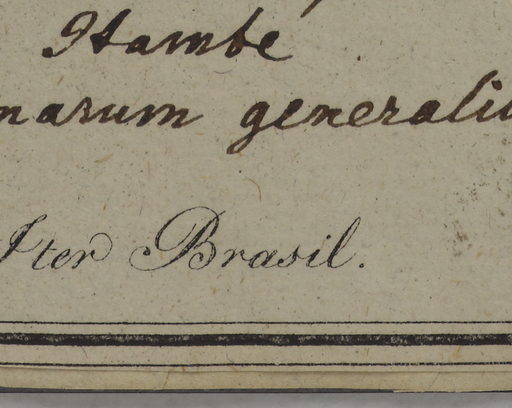 Itambe
narum generaliu
Iter Brasil.